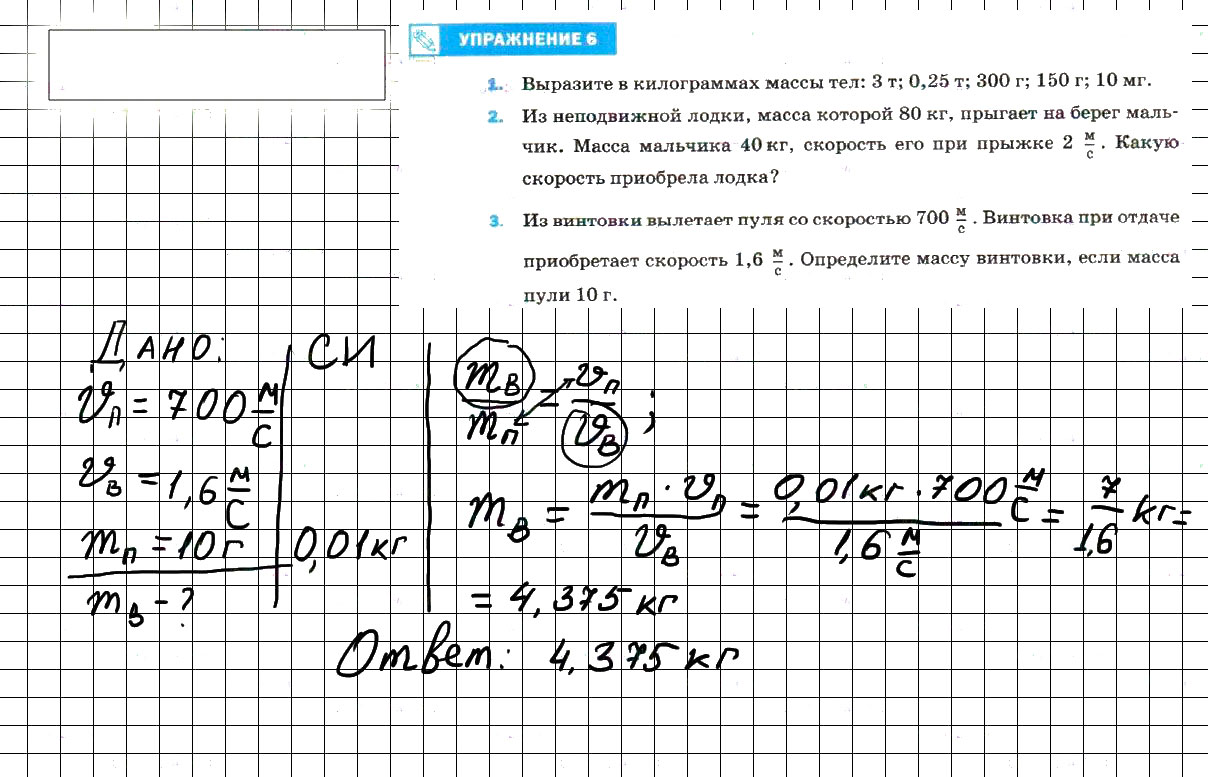 УПРАЖНЕНИЕ 6
1. Выразите в килограммах массы тел: 3 т; 0,25 т; 300 г; 150 г; 10 мг.
2. Из неподвижной лодки, масса которой 80 кг, прыгает на берег маль-
чик. Масса мальчика 40 кг, скорость его при прыжке 2 м/с. Какую
скорость приобрела лодка?
3. Из винтовки вылетает пуля со скоростью 700 м/с. Винтовка при отдаче
приобретает скорость 1,6 м/с. Определите массу винтовки, если масса
пули 10 г.
Дано:
υп = 700 м/с
υв = 1,6 м/с
mп = 10 г
mв - ?
СИ
0,01 кг
mв/mп = υп/υв;
mв = mп · υп / υв = 0,01 кг · 700 м/с / 1,6 м/с = 7/1,6 кг =
= 4,375 кг
Ответ: 4,375 кг